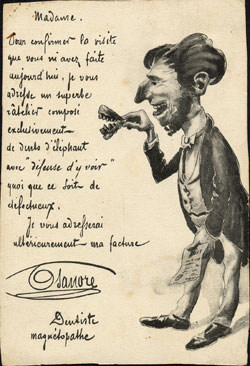 Madame.
Pour confirmer la visite
que vous m'avez faite
aujourd'hui, je vous
adresse un superbe
râtelier composé
exclusivement
de dents d'éléphant
avec "défense d'y voir"
quoi que ce soit de
défectueux.
Je vous adresserai
ultérieurement ma facture
Osanore
Dentiste
magnétopathe